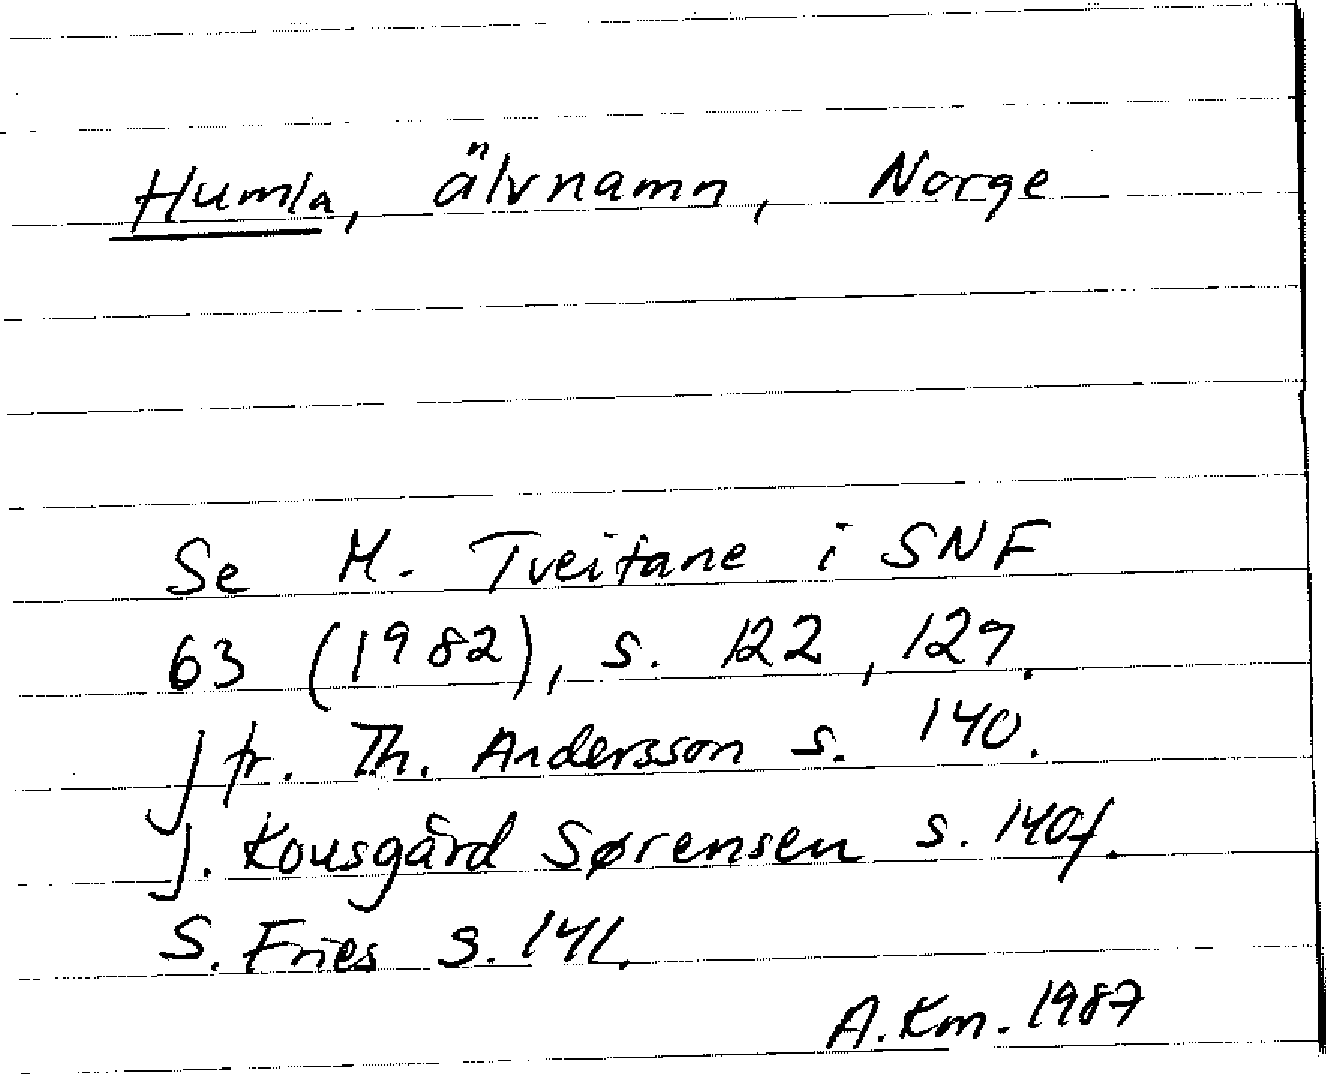 Humla, älvnamn, Norge
Se M. Tveitane i SNF
63 (1982), s. 122, 129.
jfr. Th. Andersson s. 140.
J. Kousgård Sørensen s. 140f.
S. Fries s. 141.
A. Km. 1987